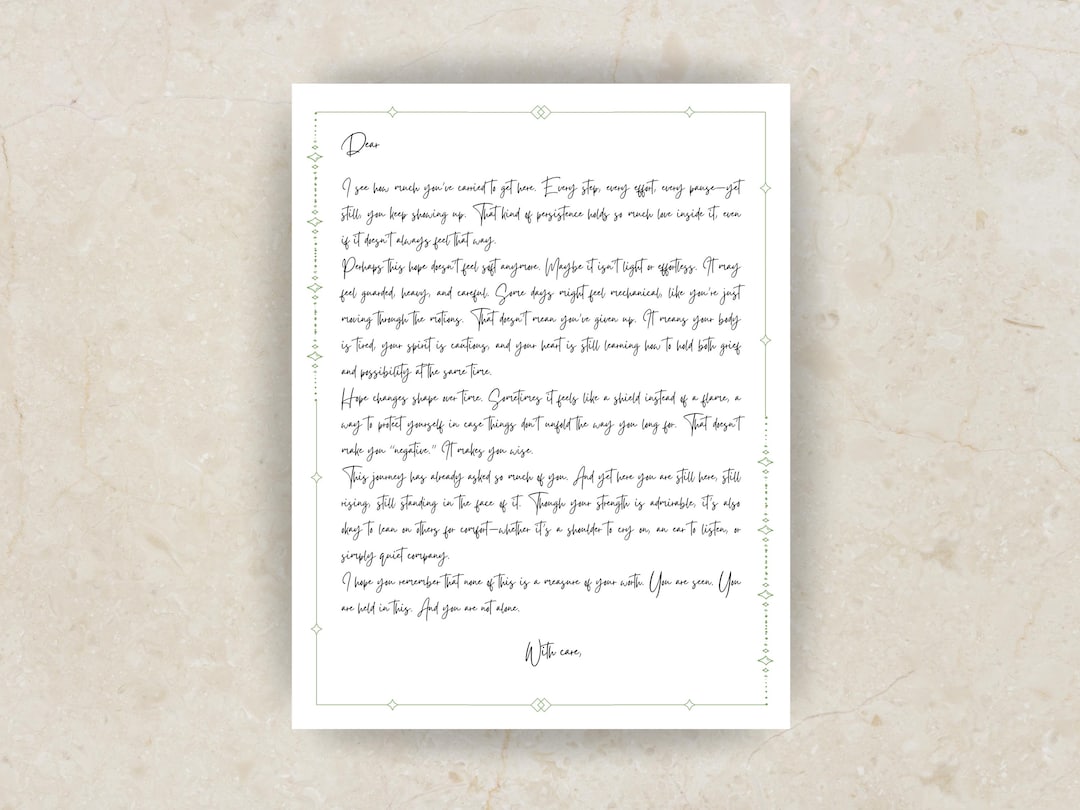 Dear
I see how much you've carried to get here. Every step, every effort, every pause—yet
still, you keep showing up. That kind of persistence holds so much love inside it, even
if it doesn't always feel that way.
Perhaps this hope doesn't feel soft anymore. Maybe it isn't light or effortless. It may
feel guarded, heavy, and careful. Some days might feel mechanical, like you're just
moving through the motions. That doesn't mean you've given up. It means your body
is tired, your spirit is cautious, and your heart is still learning how to hold both grief
and possibility at the same time.
Hope changes shape over time. Sometimes it feels like a shield instead of a flame, a
way to protect yourself in case things don't unfold the way you long for. That doesn't
make you "negative." It makes you wise.
This journey has already asked so much of you. And yet here you are still here, still
rising, still standing in the face of it. Though your strength is admirable, it's also
okay to lean on others for comfort—whether it's a shoulder to cry on, an ear to listen, or
simply quiet company.
I hope you remember that none of this is a measure of your worth. You are seen. You
are held in this. And you are not alone.
With care,